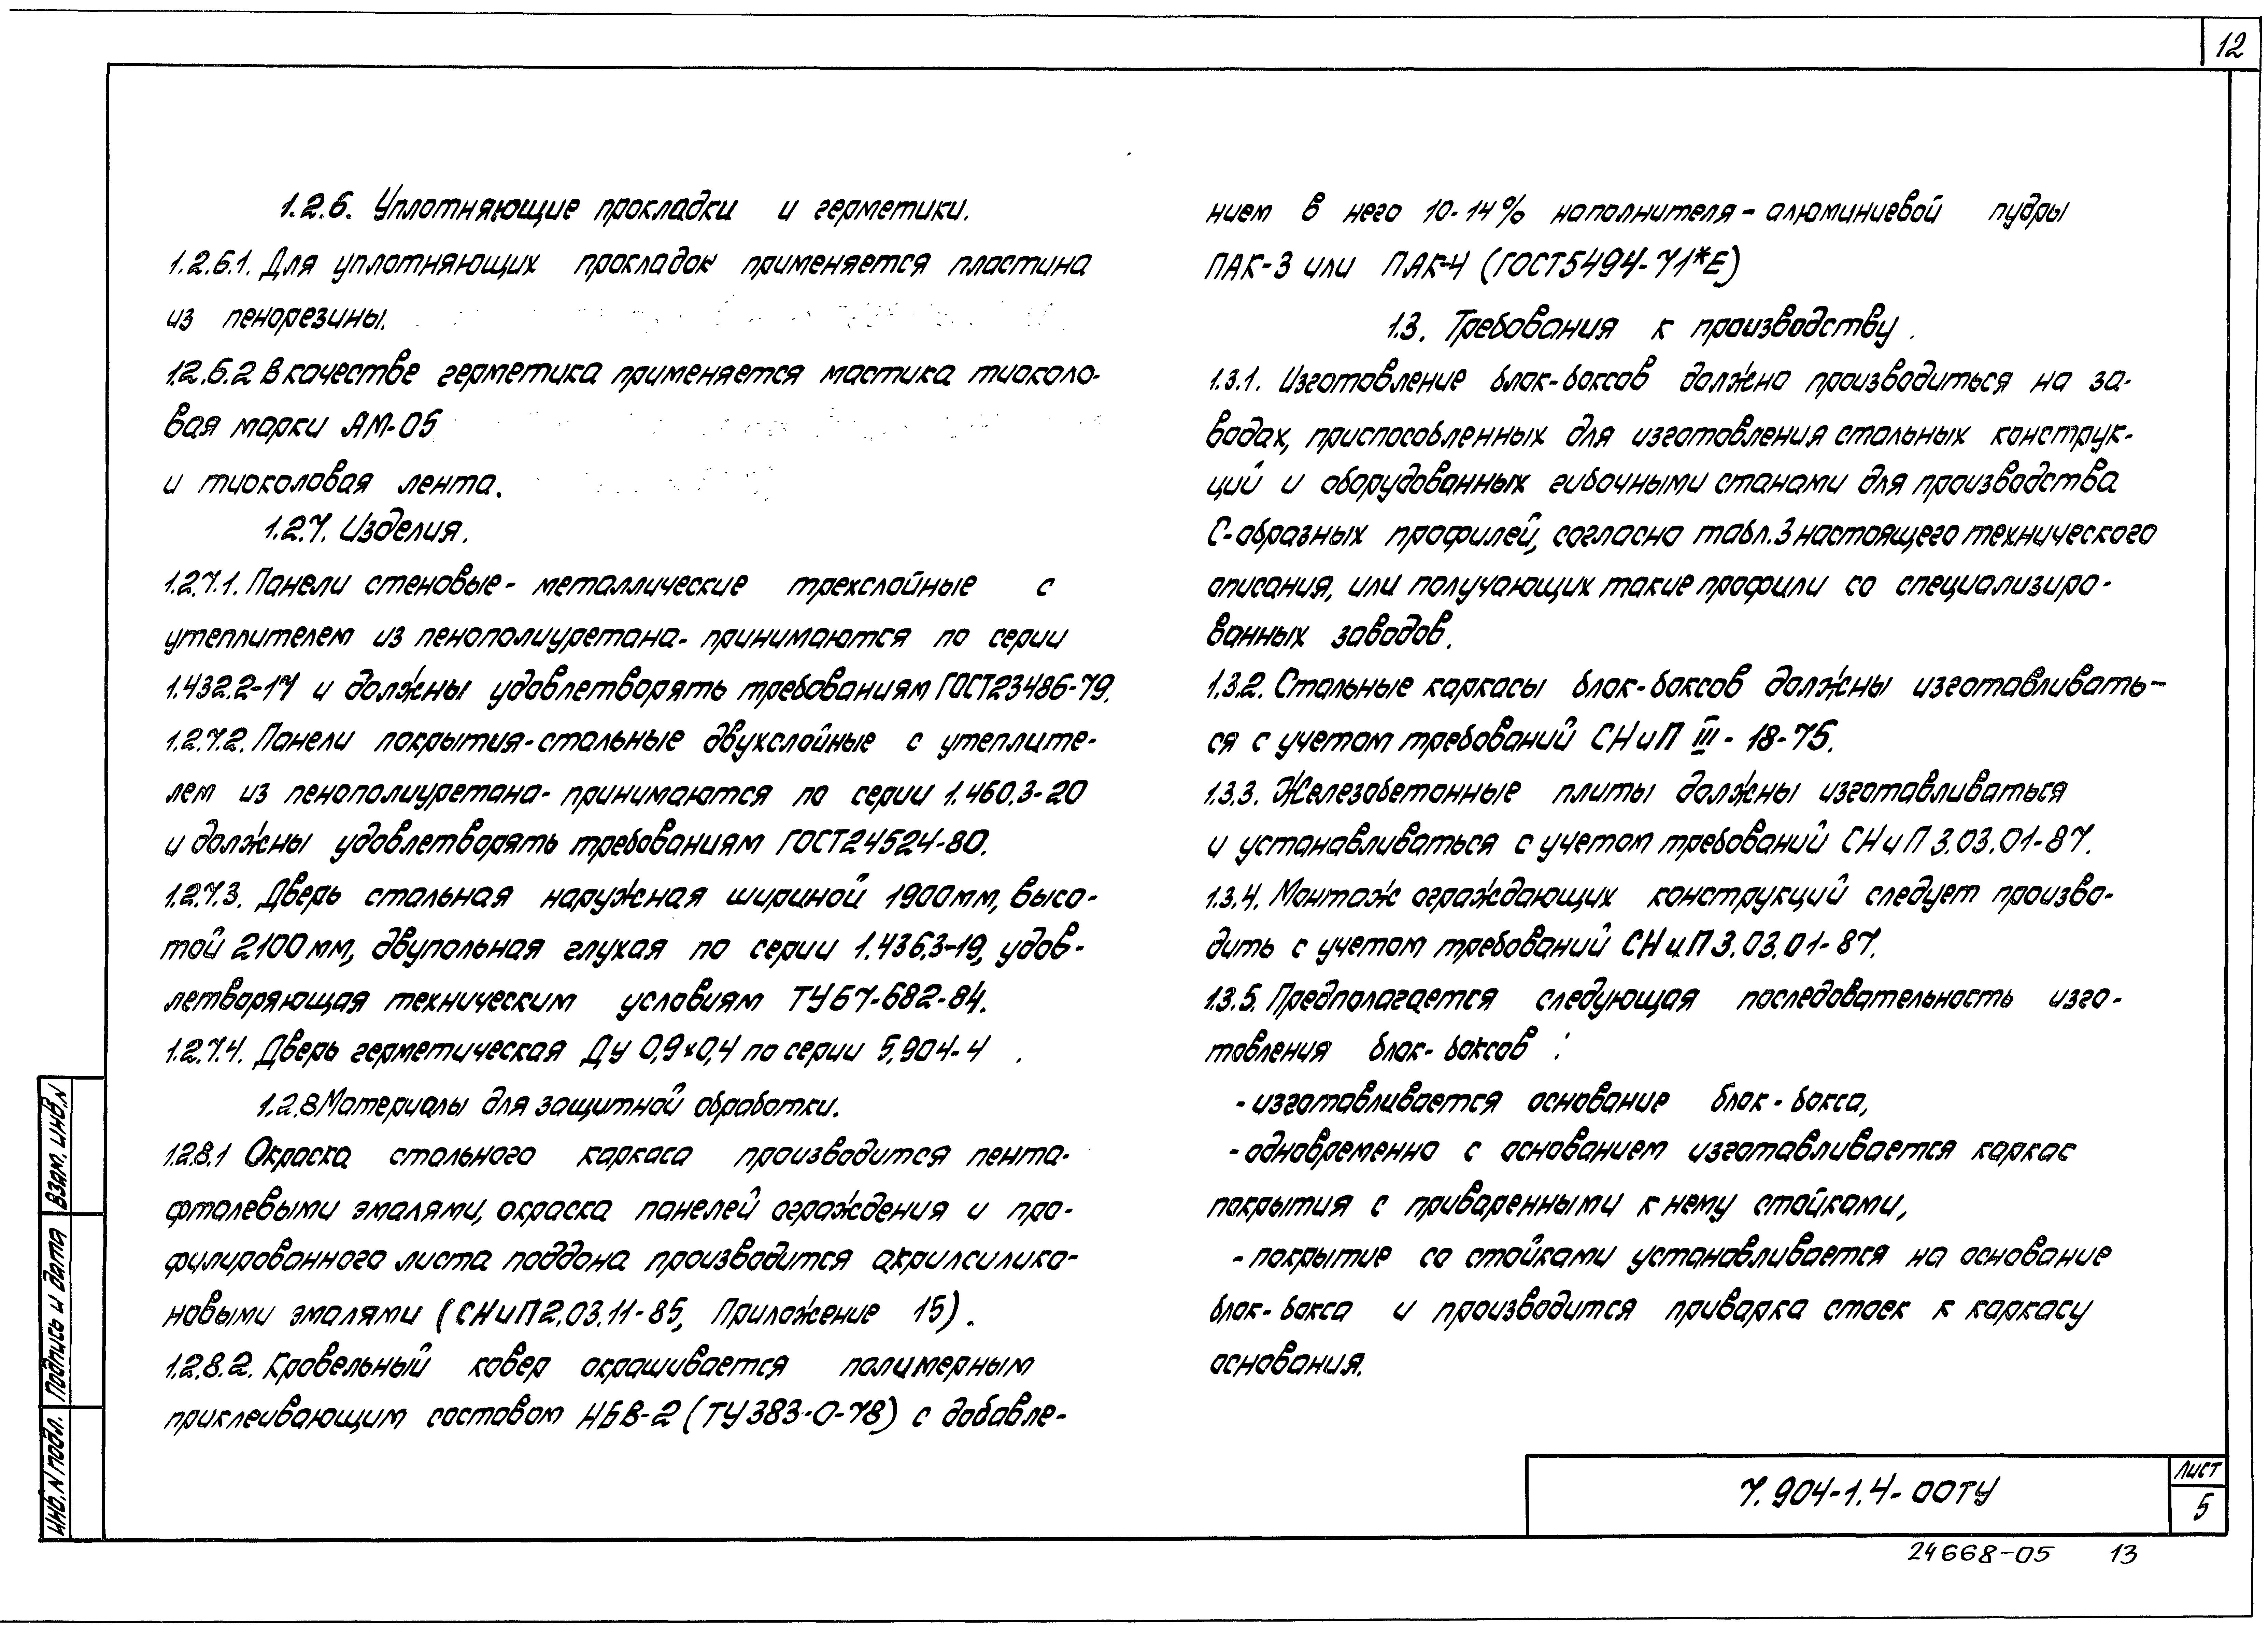 12
1.2.6. Уплотняющие прокладки и герметики.
1.2.6.1. Для уплотняющих прокладок применяется пластина
из пенорезины.
1.2.6.2 В качестве герметика применяется мастика тиоколо-
вая марки АМ-05
и тиоколовая лента.
1.2.7. Изделия.
1.2.7.1. Панели стеновые - металлические трехслойные с
утеплителем из пенополиуретана - принимаются по серии
1.432.2-17 и должны удовлетворять требованиям ГОСТ23486-79.
1.2.7.2. Панели покрытия - стальные двухслойные с утеплите-
лем из пенополиуретана - принимаются по серии 1.460.3-20
и должны удовлетворять требованиям ГОСТ24524-80.
1.2.7.3. Дверь стальная наружная шириной 1900мм, высо-
той 2100мм, двупольная глухая по серии 1.436.3-19, удов-
летворяющая техническим условиям ТУ67-682-84.
1.2.7.4. Дверь герметическая Ду 0,9х0,4 по серии 5.904-4 .
1.2.8 Материалы для защитной обработки.
1.2.8.1 Окраска стального каркаса производится пента-
фталевыми эмалями, окраска панелей ограждения и про-
филированного листа поддона производится акрилсилико-
новыми эмалями (СНиП2.03.11-85, Приложение 15).
1.2.8.2. Кровельный ковер окрашивается полимерным
приклеивающим составом НБВ-2 (ТУ383-0-78) с добавле-
нием в него 10-14% наполнителя - алюминиевой пудры
ПАК-3 или ПАК-4 (ГОСТ5494-71*Е)
1.3. Требования к производству.
1.3.1. Изготовление блок-боксов должно производиться на за-
водах, приспособленных для изготовления стальных конструк-
ций и оборудованных гибочными станами для производства
С-образных профилей, согласно табл.3 настоящего технического
описания, или получающих такие профили со специализиро-
ванных заводов.
1.3.2. Стальные каркасы блок-боксов должны изготавливать-
ся с учетом требований СНиП III - 18-75.
1.3.3. Железобетонные плиты должны изготавливаться
и устанавливаться с учетом требований СНиП 3.03.01-87.
1.3.4. Монтаж ограждающих конструкций следует произво-
дить с учетом требований СНиП3.03.01-87.
1.3.5. Предполагается следующая последовательность изго-
товления блок-боксов :
- изготавливается основание блок-бокса,
- одновременно с основанием изготавливается каркас
покрытия с приваренными к нему стойками,
- покрытие со стойками устанавливается на основание
блок-бокса и производится приварка стоек к каркасу
основания.
Взам. инв. N
Подпись и дата
Инв. N подл.
7.904-1.4-00ТУ
Лист
5
24668-05 13